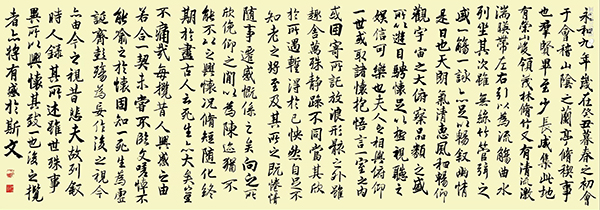 永和九年歲在癸丑暮春之初會
于會稽山陰之蘭亭脩稧事
也羣賢畢至少長咸集此地
有崇山峻領茂林脩竹又有清流激
湍暎帶左右引以為流觴曲水
列坐其次雖無絲竹管弦之
盛一觴一詠亦足以暢敘幽情
是日也天朗氣清惠風和暢仰
觀宇宙之大俯察品類之盛
所以遊目騁懷足以極視聽之
娛信可樂也夫人之相與俯仰
一世或取諸懷抱悟言一室之內
或因寄所託放浪形骸之外雖
趣舍萬殊靜躁不同當其欣
於所遇暫得於己怏然自足不
知老之將至及其所之既惓情
隨事遷感慨係之矣向之所
欣俛仰之閒以為陳迹猶不
能不以之興懷況脩短隨化終
期於盡古人云死生亦大矣豈
不痛哉每攬昔人興感之由
若合一契未嘗不臨文嗟悼不
能喻之於懷固知一死生為虛
誕齊彭殤為妄作後之視今
亦由今之視昔悲夫故列敘
時人錄其所述雖世殊事
異所以興懷其致一也後之攬
者亦將有感於斯文